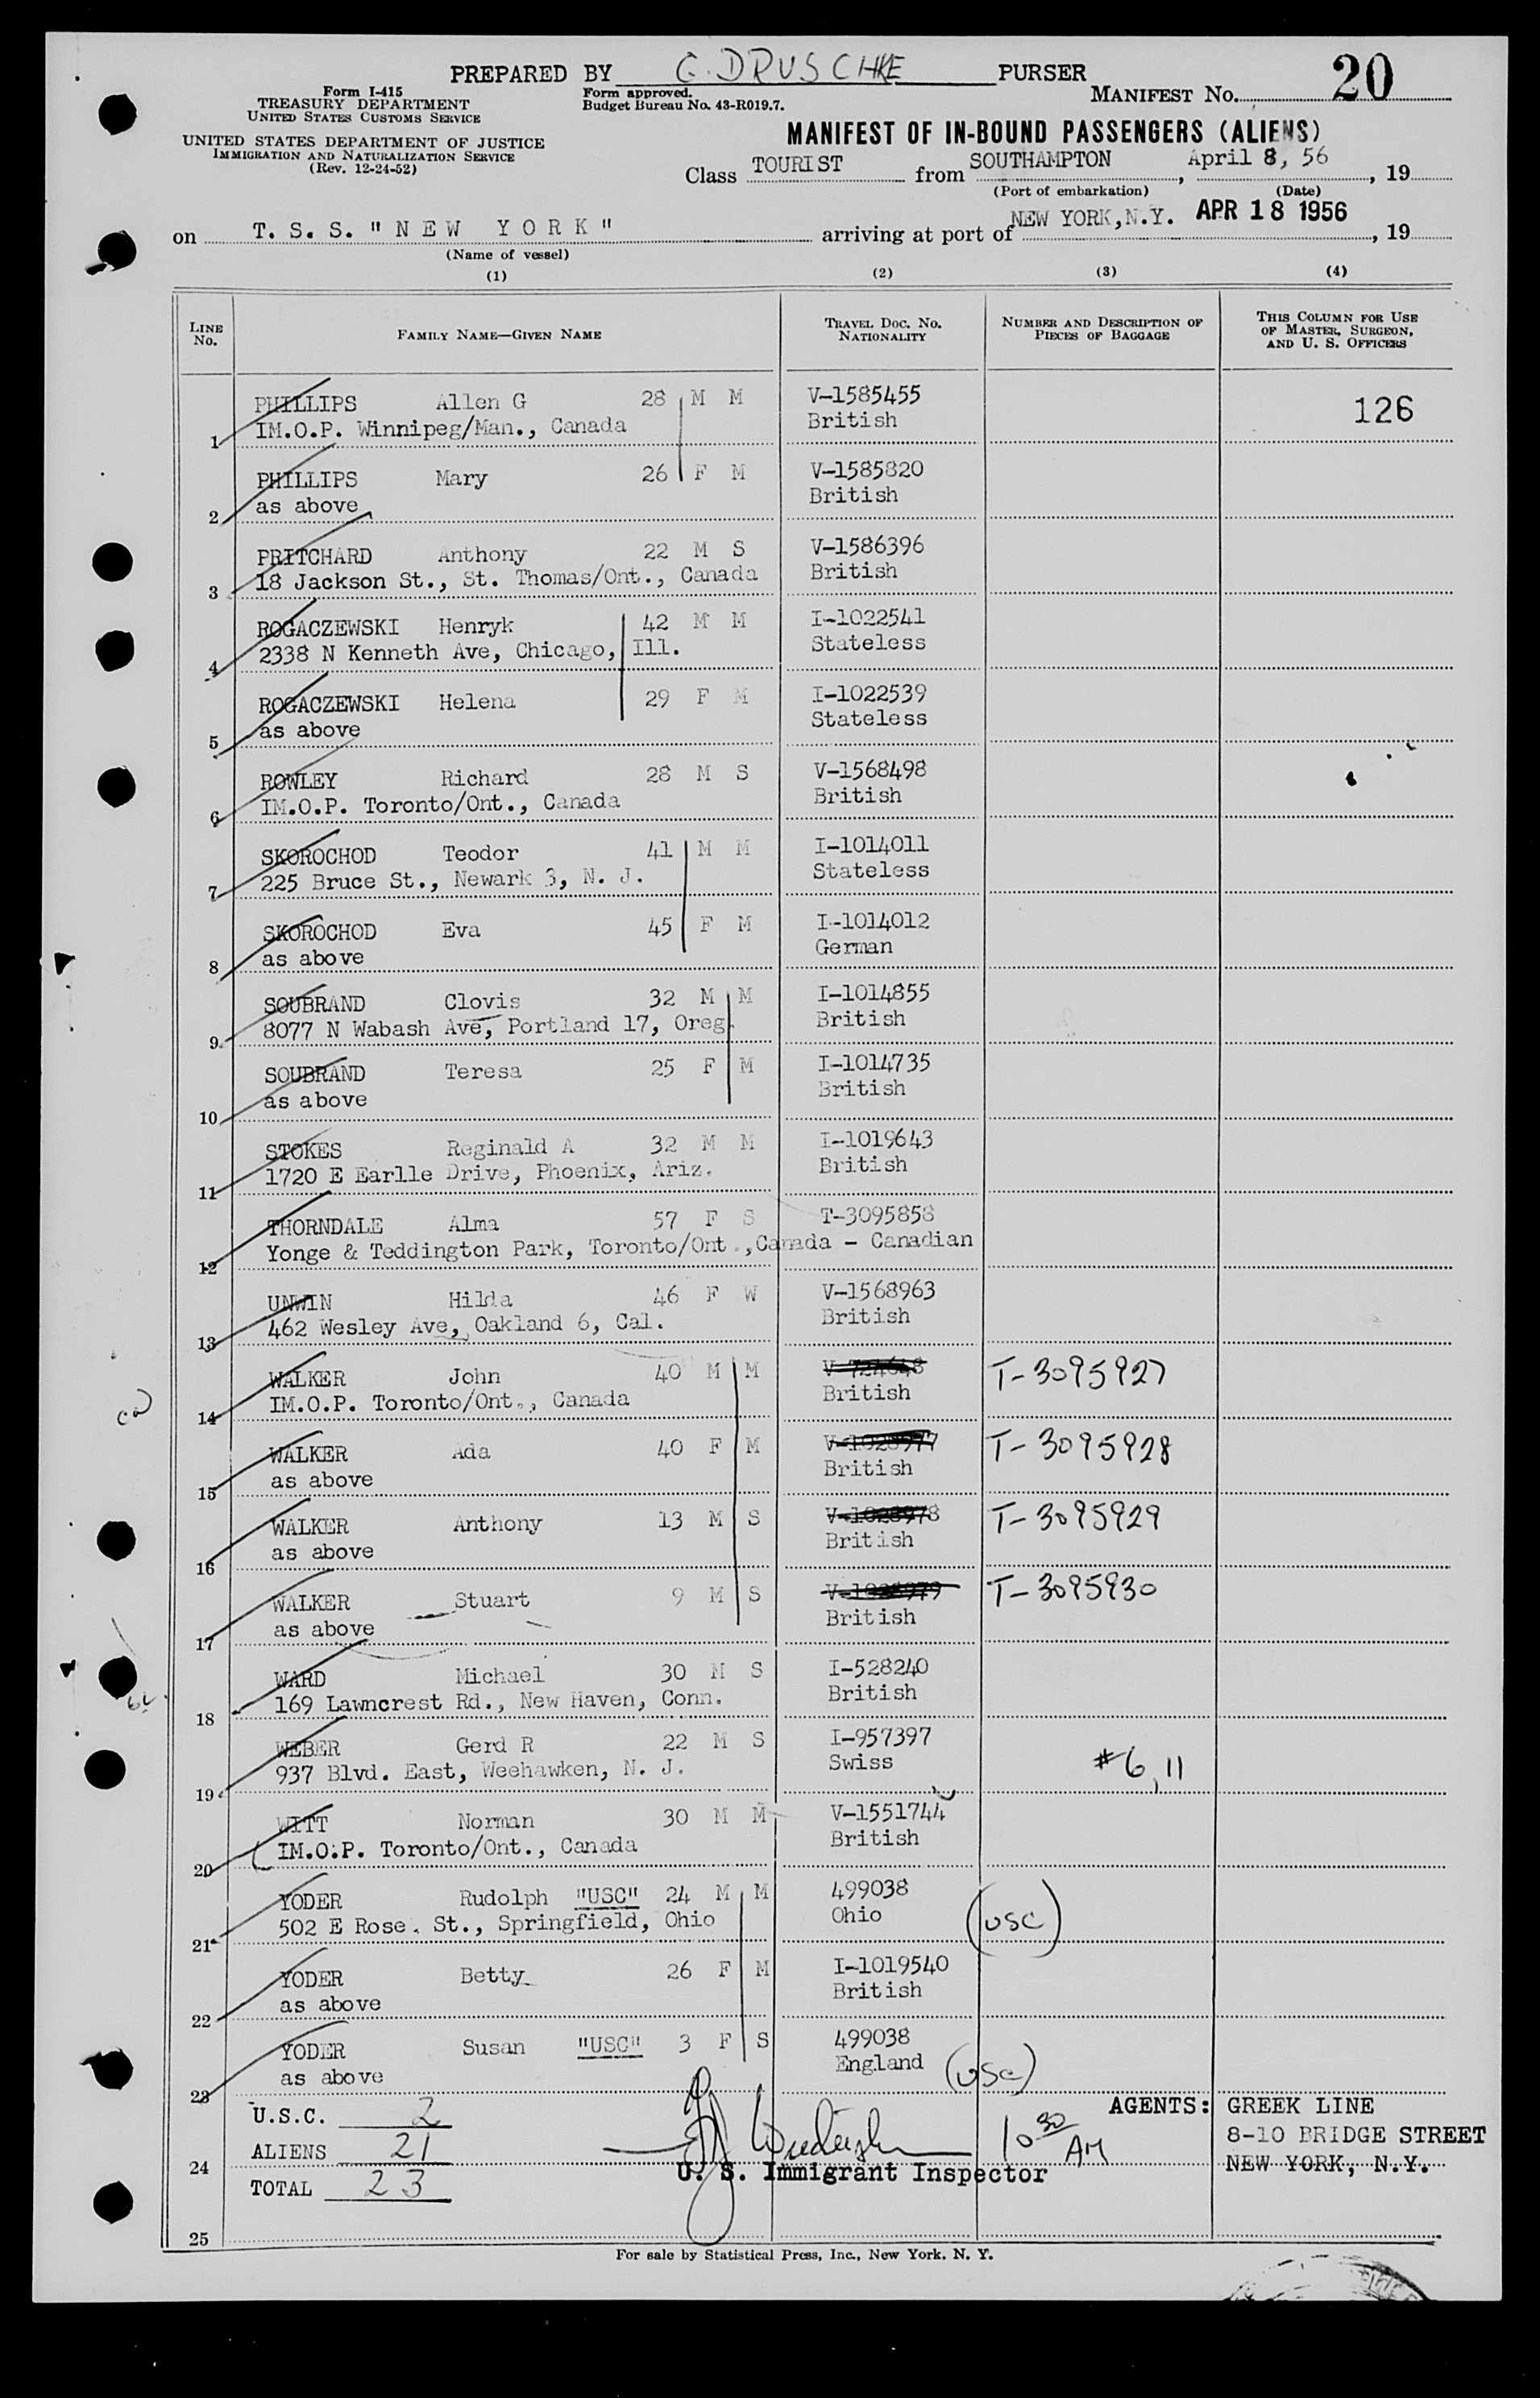 PREPARED BY G. DRUSCHKE PURSER
Form I-415
TREASURY DEPARTMENT
UNITED STATES CUSTOMS SERVICE
Form approved.
Budget Bureau No. 43-R019.7.
MANIFEST No. 20
UNITED STATES DEPARTMENT OF JUSTICE
IMMIGRATION AND NATURALIZATION SERVICE
(Rev. 12-24-52)
MANIFEST OF IN-BOUND PASSENGERS (ALIENS)
Class TOURIST from SOUTHAMPTON, April 8, 56, 19
(Port of embarkation) (Date)
on T. S. S. "NEW YORK" arriving at port of NEW YORK, N.Y. APR 18 1956, 19
(Name of vessel)
(1) (2) (3) (4)
LINE No. FAMILY NAME—GIVEN NAME TRAVEL DOC. No. NATIONALITY NUMBER AND DESCRIPTION OF PIECES OF BAGGAGE THIS COLUMN FOR USE OF MASTER, SURGEON, AND U. S. OFFICERS
PHILLIPS Allen G 28 M M V-1585455 126
1 IM.O.P. Winnipeg/Man., Canada British
PHILLIPS Mary 26 F M V-1585820
2 as above British
PRITCHARD Anthony 22 M S V-1586396
3 18 Jackson St., St. Thomas/Ont., Canada British
ROGACZEWSKI Henryk 42 M M I-1022541
4 2338 N Kenneth Ave, Chicago, Ill. Stateless
ROGACZEWSKI Helena 29 F M I-1022539
5 as above Stateless
ROWLEY Richard 28 M S V-1568498
6 IM.O.P. Toronto/Ont., Canada British
SKOROCHOD Teodor 41 M M I-1014011
7 225 Bruce St., Newark 3, N. J. Stateless
SKOROCHOD Eva 45 F M I-1014012
8 as above German
SOUBRAND Clovis 32 M M I-1014855
9 8077 N Wabash Ave, Portland 17, Oreg. British
SOUBRAND Teresa 25 F M I-1014735
10 as above British
STOKES Reginald A 32 M M I-1019643
11 1720 E Earlle Drive, Phoenix, Ariz. British
THORNDALE Alma 57 F S T-3095858
12 Yonge & Teddington Park, Toronto/Ont., Canada - Canadian
UNWIN Hilda 46 F W V-1568963
13 462 Wesley Ave, Oakland 6, Cal. British
WALKER John 40 M M T-3095927
14 IM.O.P. Toronto/Ont., Canada British
WALKER Ada 40 F M V-1028977 T-3095928
15 as above British
WALKER Anthony 13 M S V-1028978 T-3095929
16 as above British
WALKER Stuart 9 M S V-1028979 T-3095930
17 as above British
WARD Michael 30 M S I-528240
18 169 Lawncrest Rd., New Haven, Conn. British
WEBER Gerd R 22 M S I-957397
19 937 Blvd. East, Weehawken, N. J. Swiss #6, 11
WITT Norman 30 M M V-1551744
20 IM.O.P. Toronto/Ont., Canada British
YODER Rudolph "USC" 24 M M 499038
21 502 E Rose. St., Springfield, Ohio Ohio (USC)
YODER Betty 26 F M I-1019540
22 as above British
YODER Susan "USC" 3 F S 499038
23 as above England (USC)
U.S.C. 2 AGENTS: GREEK LINE
ALIENS 21 10 30 AM 8-10 BRIDGE STREET
24 U. S. Immigrant Inspector NEW YORK, N.Y.
TOTAL 23
25
For sale by Statistical Press, Inc., New York, N. Y.